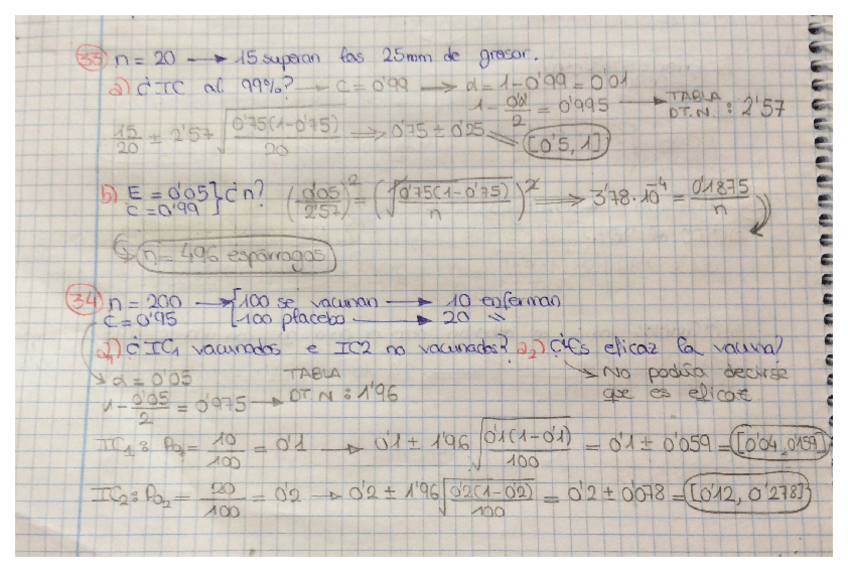 33 n = 20 → 15 superan los 25mm de grosor.
a) ¿IC al 99%? → C = 0'99 → α = 1-0'99 = 0'01
1 - 0'01/2 = 0'995 → TABLA DT.N. : 2'57
15/20 ± 2'57 √(0'75(1-0'75)/20) ⇒ 0'75 ± 0'25 ⇒ [0'5, 1]
b) E = 0'05 } ¿n? (0'05/2'57)² = (√(0'75(1-0'75)/n))² ⇒ 3'78·10⁻⁴ = 0'1875/n
C = 0'99
n = 496 espárragos
34 n = 200 → [100 se vacunan → 10 enferman
C = 0'95 [100 placebo → 20 "
a₁) ¿IC₁ vacunados e IC2 no vacunados? a₂) ¿Es eficaz la vacuna?
α = 0'05 TABLA → No podría decirse
1 - 0'05/2 = 0'975 → DT.N : 1'96 que es eficaz
IC₁: Po₁ = 10/100 = 0'1 → 0'1 ± 1'96 √(0'1(1-0'1)/100) = 0'1 ± 0'059 = [0'04, 0'159]
IC₂: Po₂ = 20/100 = 0'2 → 0'2 ± 1'96 √(0'2(1-0'2)/100) = 0'2 ± 0'078 = [0'12, 0'278]